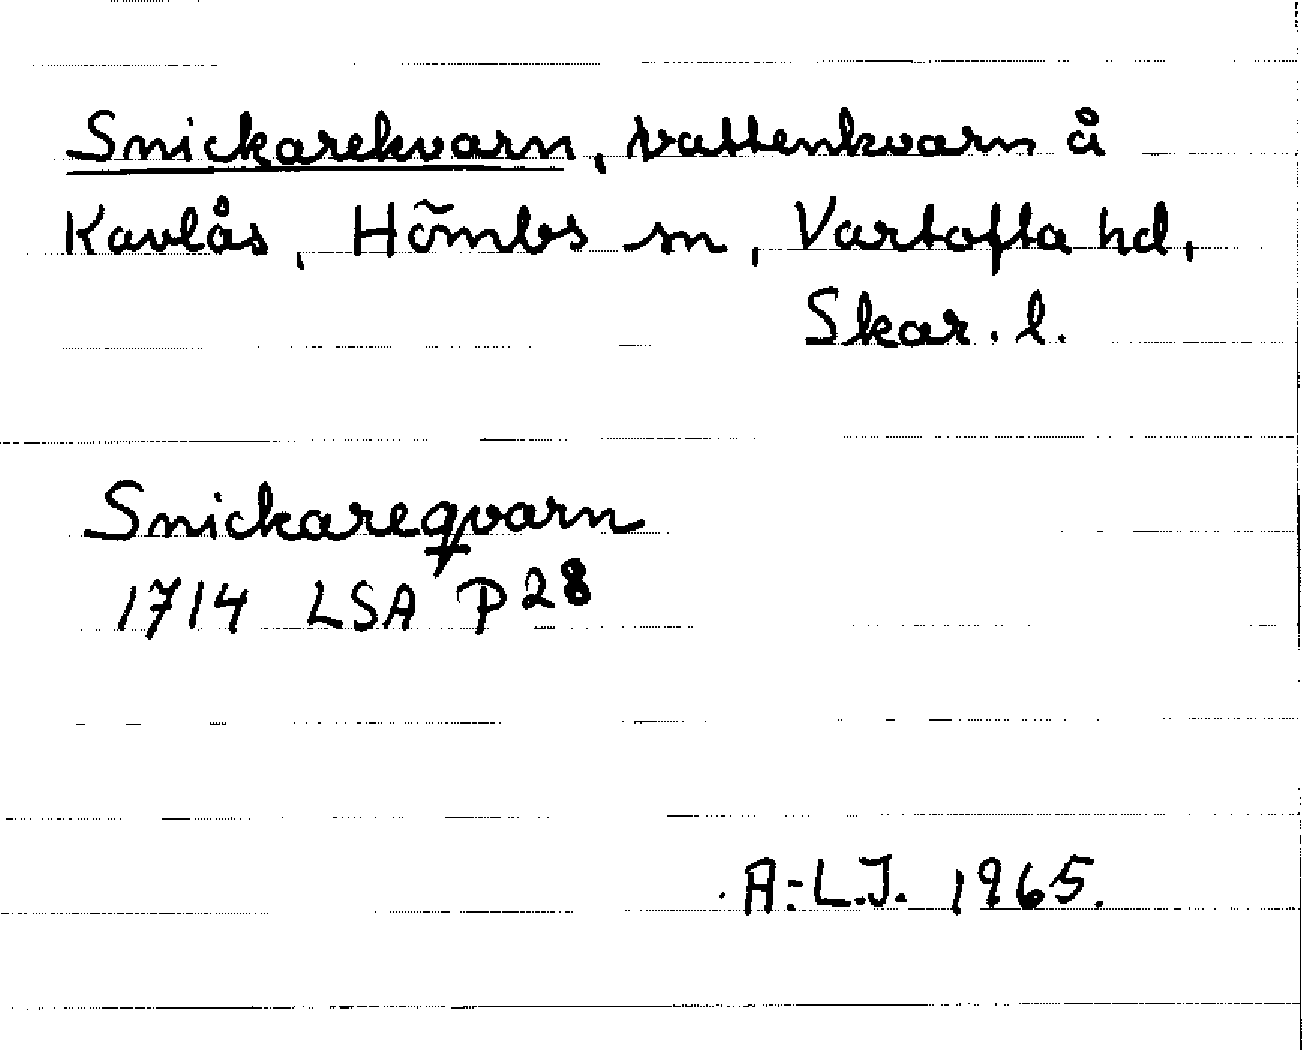 Snickarekvarn, vattenkvarn å
Kavlås, Hömbs sn, Vartofta hd,
Skar. l.
Snickareqvarn
1714 LSA P28
A:L.J. 1965.